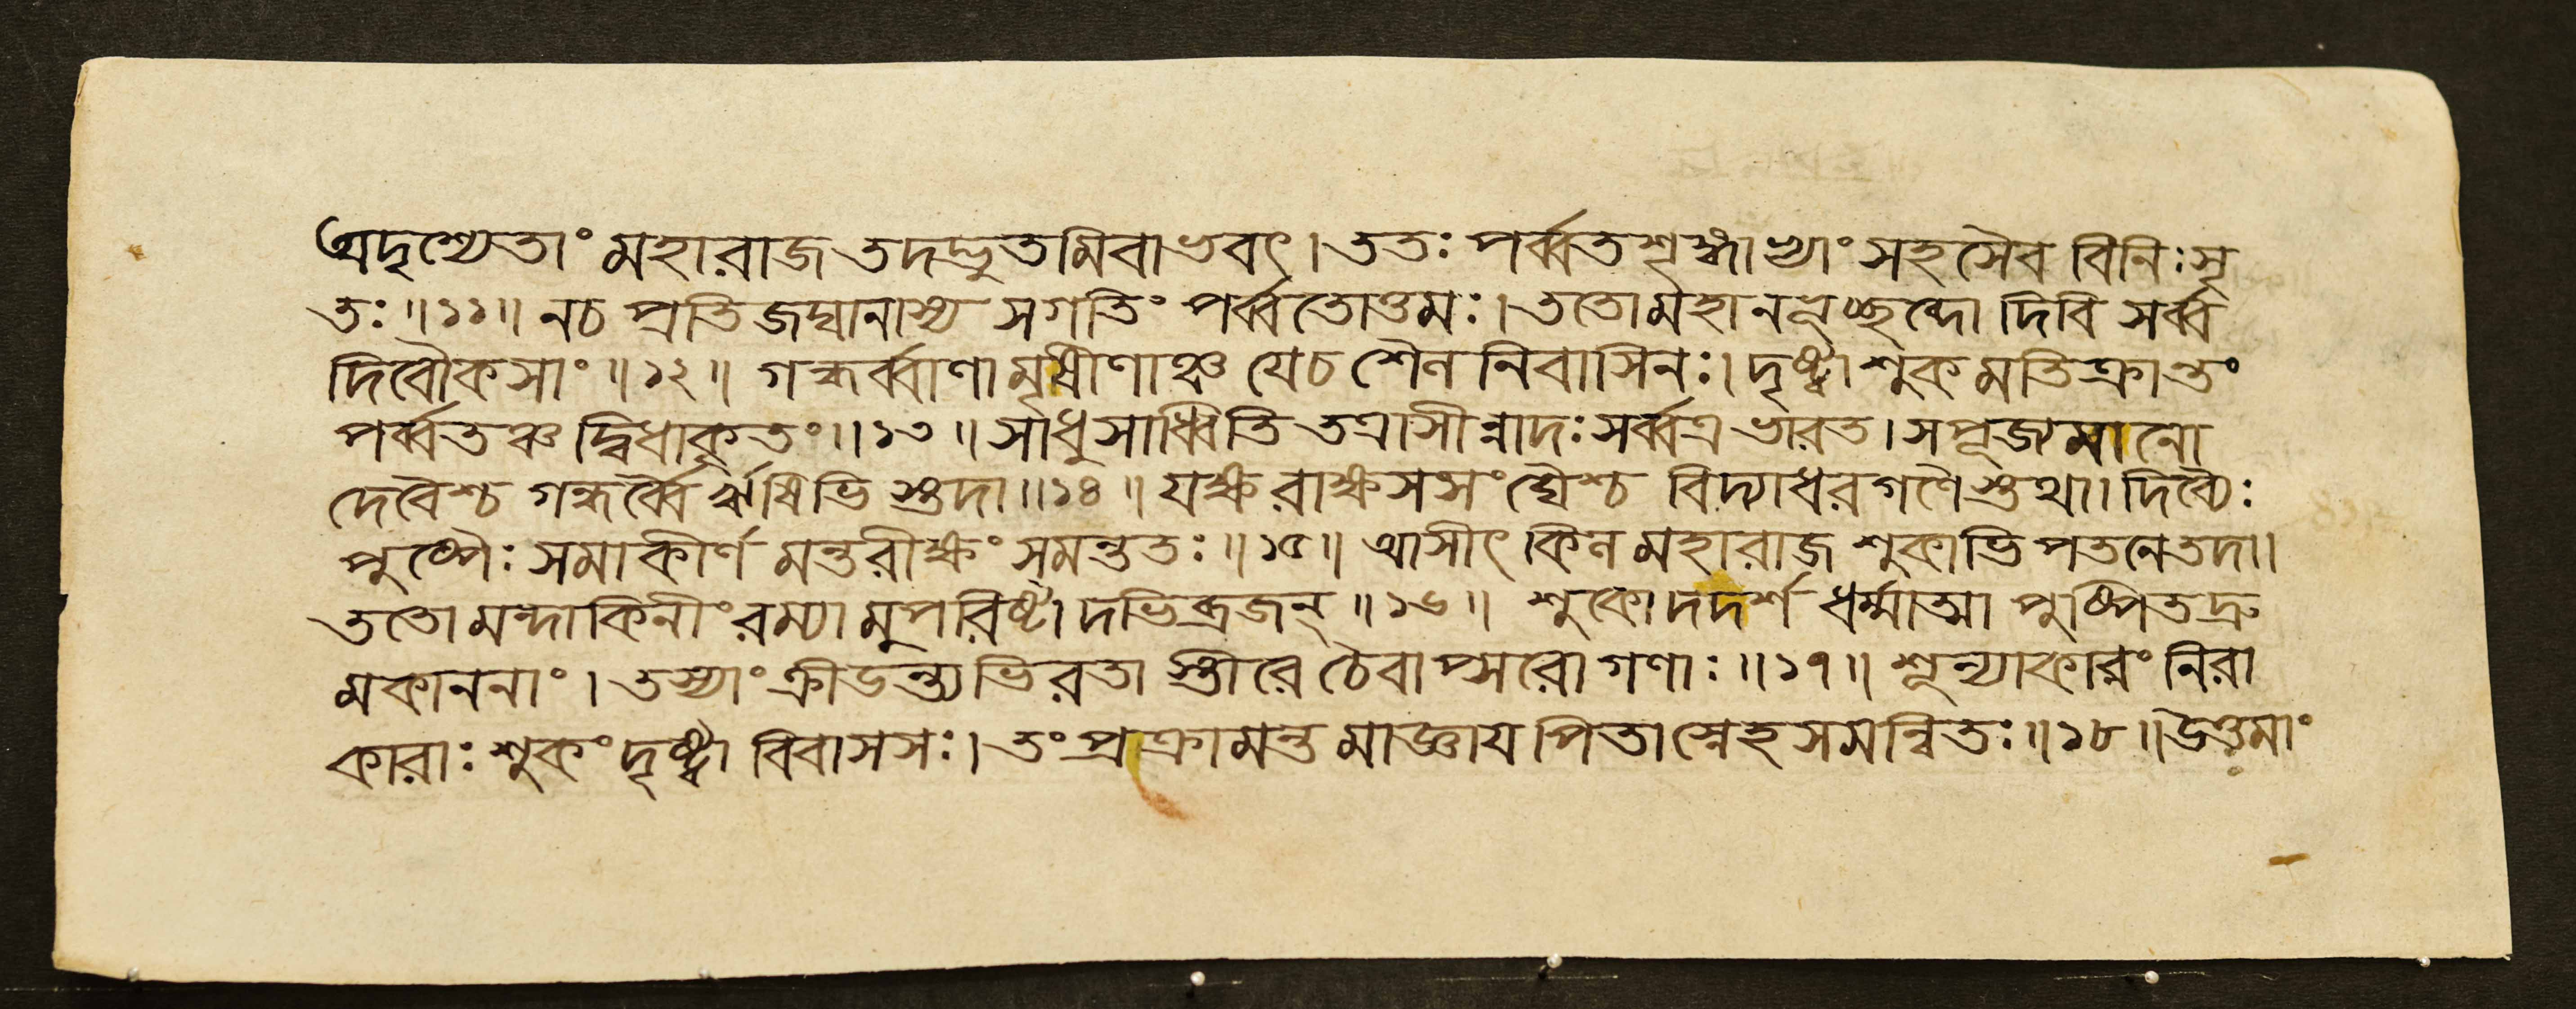 অদৃশ্যেতাং মহারাজ তদদ্ভুতমিবাভবৎ । ততঃ পর্ব্বতশৃঙ্গাভ্যাং সহসৈব বিনিঃসৃ
তঃ ॥ ১১ ॥ নচ প্রতিজঘানাস্য সগতিং পর্ব্বতোত্তমঃ । ততোমহানভূচ্ছব্দো দিবি সর্ব্ব
দিবৌকসাং ॥ ১২ ॥ গন্ধর্ব্বাণামৃষীণাঞ্চ যেচ শৈলনিবাসিনঃ । দৃষ্ট্বা শুকমতিক্রান্তং
পর্ব্বতঞ্চ দ্বিধাকৃতং ॥ ১৩ ॥ সাধুসাধ্বিতি তত্রাসীন্নাদঃ সর্ব্বত্র ভারত । সপূজ্যমানো
দেবৈশ্চ গন্ধর্ব্বৈর্ঋষিভিস্তদা ॥ ১৪ ॥ যক্ষরাক্ষসসংঘৈশ্চ বিদ্যাধরগণৈস্তথা । দিব্যৈঃ
পুষ্পৈঃ সমাকীর্ণমন্তরীক্ষং সমন্ততঃ ॥ ১৫ ॥ আসীৎ কিল মহারাজ শুকাভিপতনেতদা ।
ততোমন্দাকিনীং রম্যামুপরিষ্টাদভিব্রজন্ ॥ ১৬ ॥ শুকোদদর্শ ধর্ম্মাত্মা পুষ্পিতদ্রু
মকাননাং । তস্যাং ক্রীডন্ত্যভিরতাস্তীরে চৈবাপ্সরোগণাঃ ॥ ১৭ ॥ শূন্যাকারং নিরা
কারাঃ শুকং দৃষ্ট্বা বিবাসসঃ । তং প্রক্রামন্তমাজ্ঞায পিতাস্নেহসমন্বিতঃ ॥ ১৮ ॥ উত্তমাং